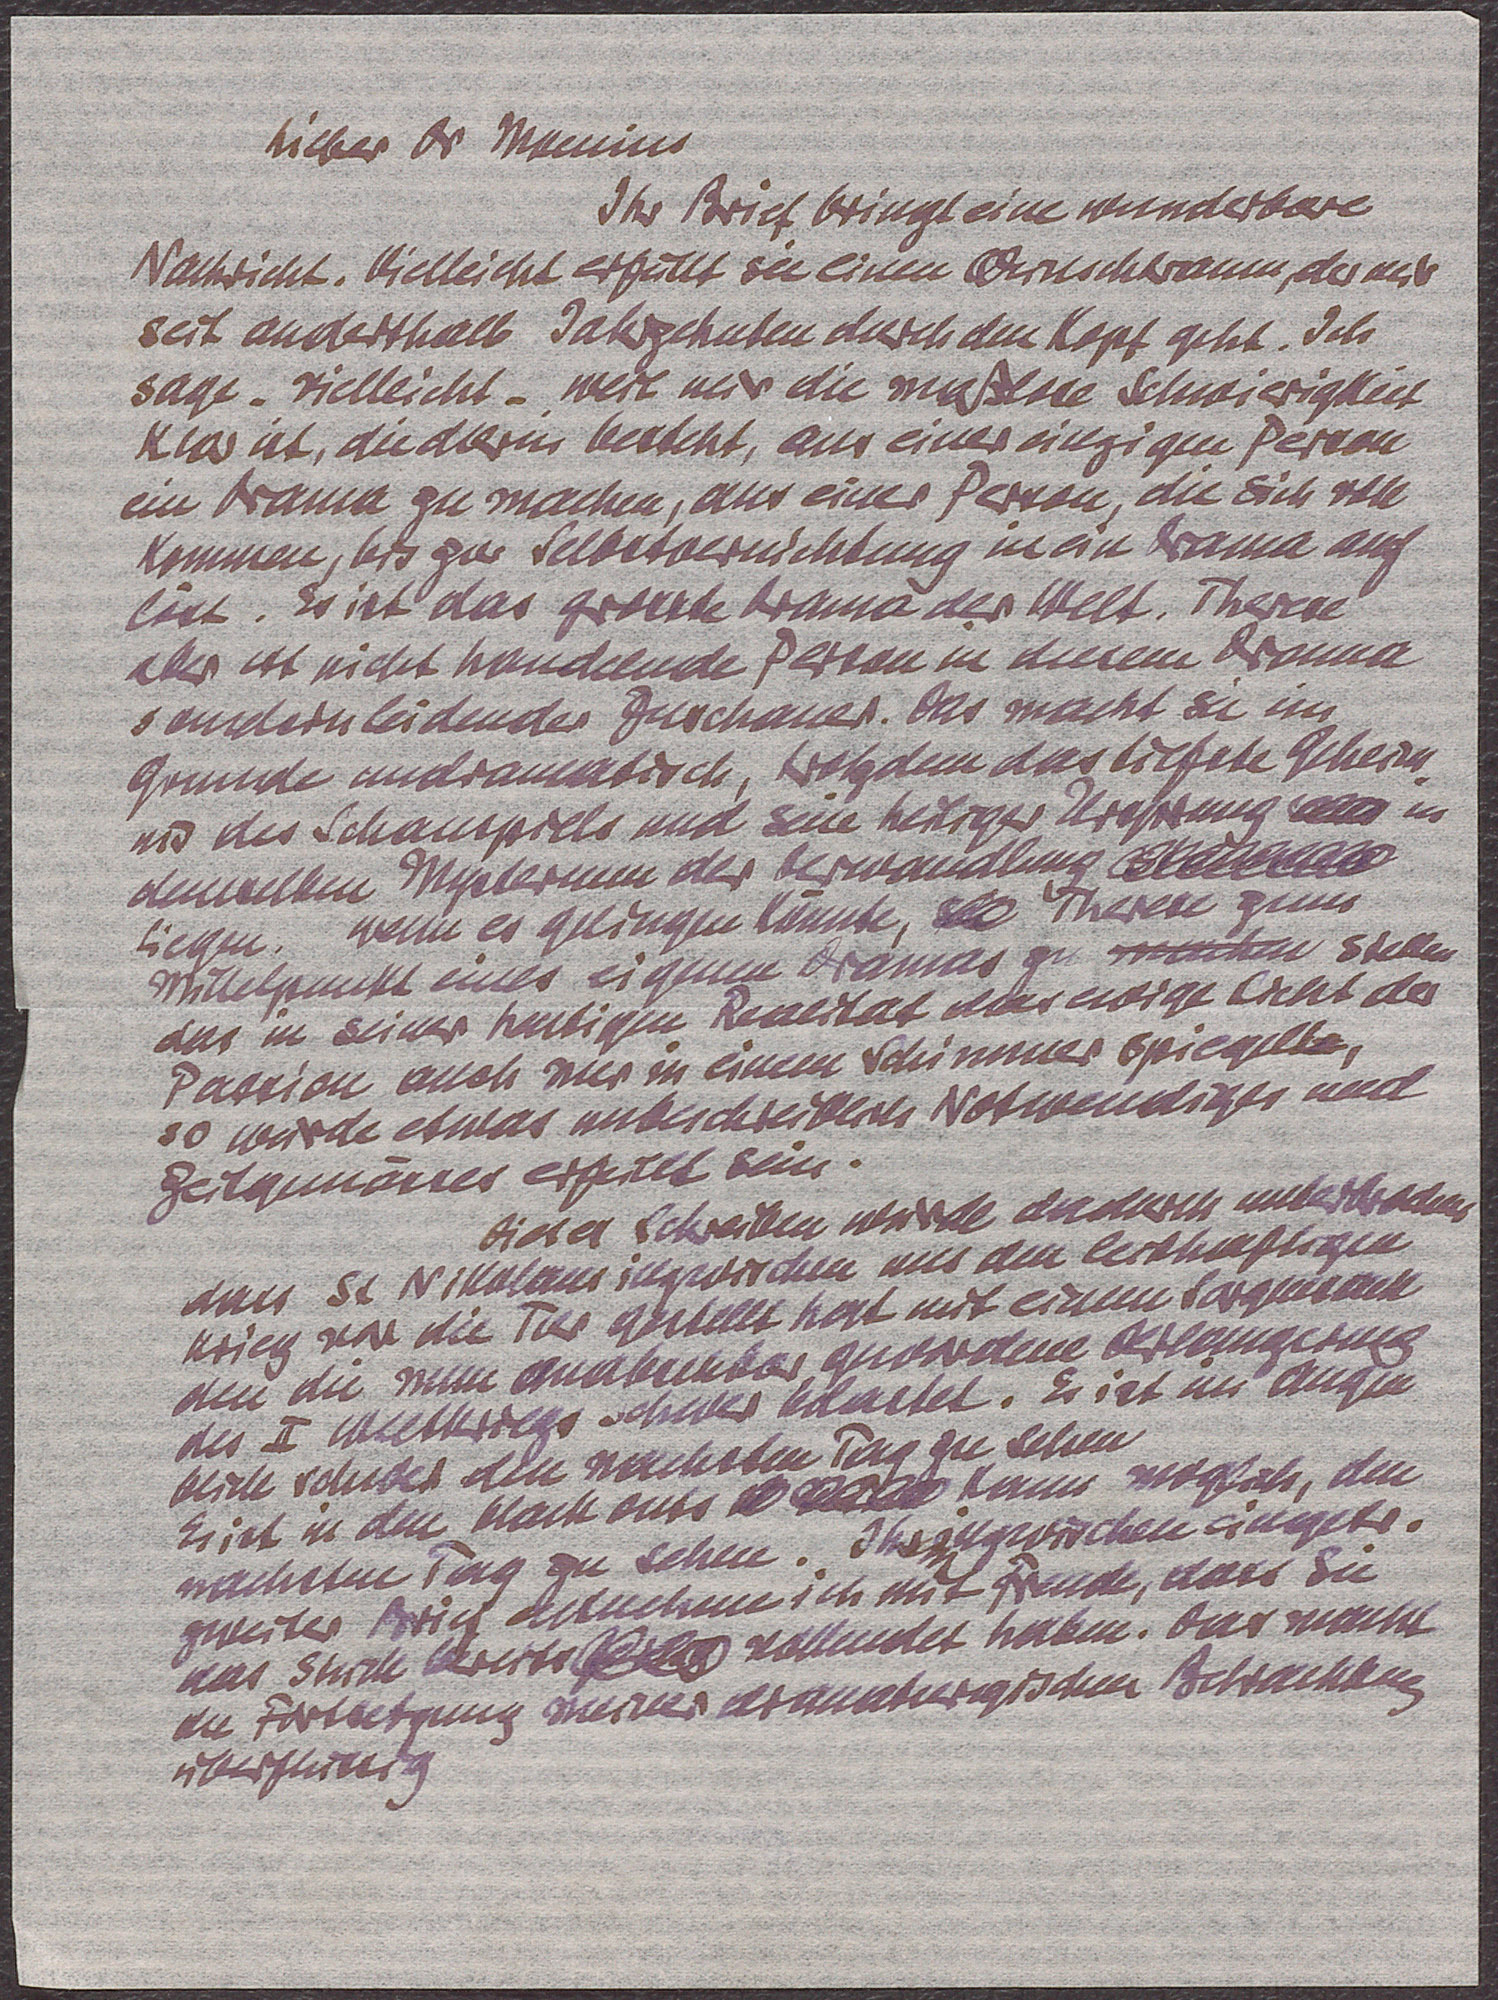 Lieber Dr Momius
Ihr Brief bringt eine wunderbare
Nachricht. Vielleicht erfüllt sie einen Wunschtraum, der mir
seit anderthalb Jahrzehnten durch den Kopf geht. Ich
sage - vielleicht - weil mir die maßlose Schwierigkeit
klar ist, die darin besteht, aus einer einzigen Person
ein Drama zu machen, aus einer Person, die sich voll
kommen, bis zur Selbstvernichtung in ein Drama auf
löst. Es ist das grösste Drama der Welt. Therese
aber ist nicht handelnde Person in diesem Drama
sondern leidender Zuschauer. Das macht sie im
Grunde undramatisch, trotzdem das tiefste Geheim
nis des Schauspiels und sein heiliger Ursprung in
demselben Mysterium der Verwandlung
liegen. Wenn es gelingen könnte, Therese zum
Mittelpunkt eines eigenen Dramas zu machen stellen
das in seiner heutigen Realität das ewige Licht der
Passion auch nur in einem Schimmer spiegelte,
so würde etwas unbeschreiblich Notwendiges und
Zeitgemässes erfüllt sein.
Dieses Schreiben wurde dadurch unterbrochen
dass St Nikolaus inzwischen uns den leibhaftigen
Krieg vor die Tür gestellt hat mit einem Sorgensack
den die nun unabsehbar gewordene Verlängerung
des II Weltkriegs schwer belastet. Es ist im Augen
blick schwer den nächsten Tag zu sehen
Es ist in den black outs kaum möglich, den
nächsten Tag zu sehen. Ihrem inzwischen eingetr.
zweiten Brief entnehme ich mit Freude, dass Sie
das Stück bereits vollendet haben. Das macht
die Fortsetzung meiner dramaturgischen Betrachtung
überflüssig